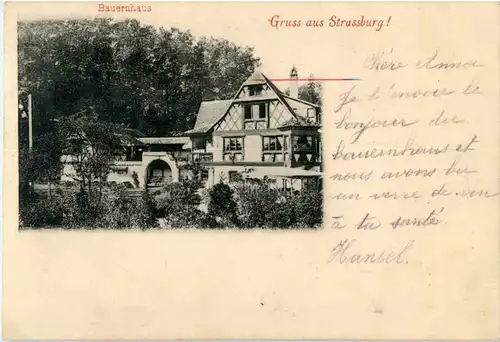 Bauernhaus
Gruss aus Strassburg!
Chère Anna
Je t'envoie le
bonjour du
bauernhaus et
nous avons bu
un verre de vin
à ta santé.
Hansel.